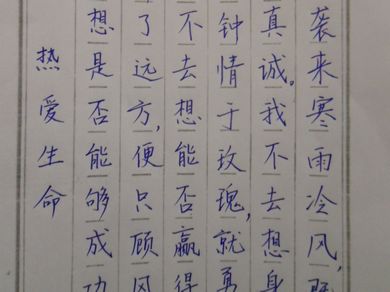 热爱生命
想是否能够成功
了远方,便只顾风
不去想能否赢得
钟情于玫瑰,就勇
真诚。我不去想身
袭来寒雨冷风,既